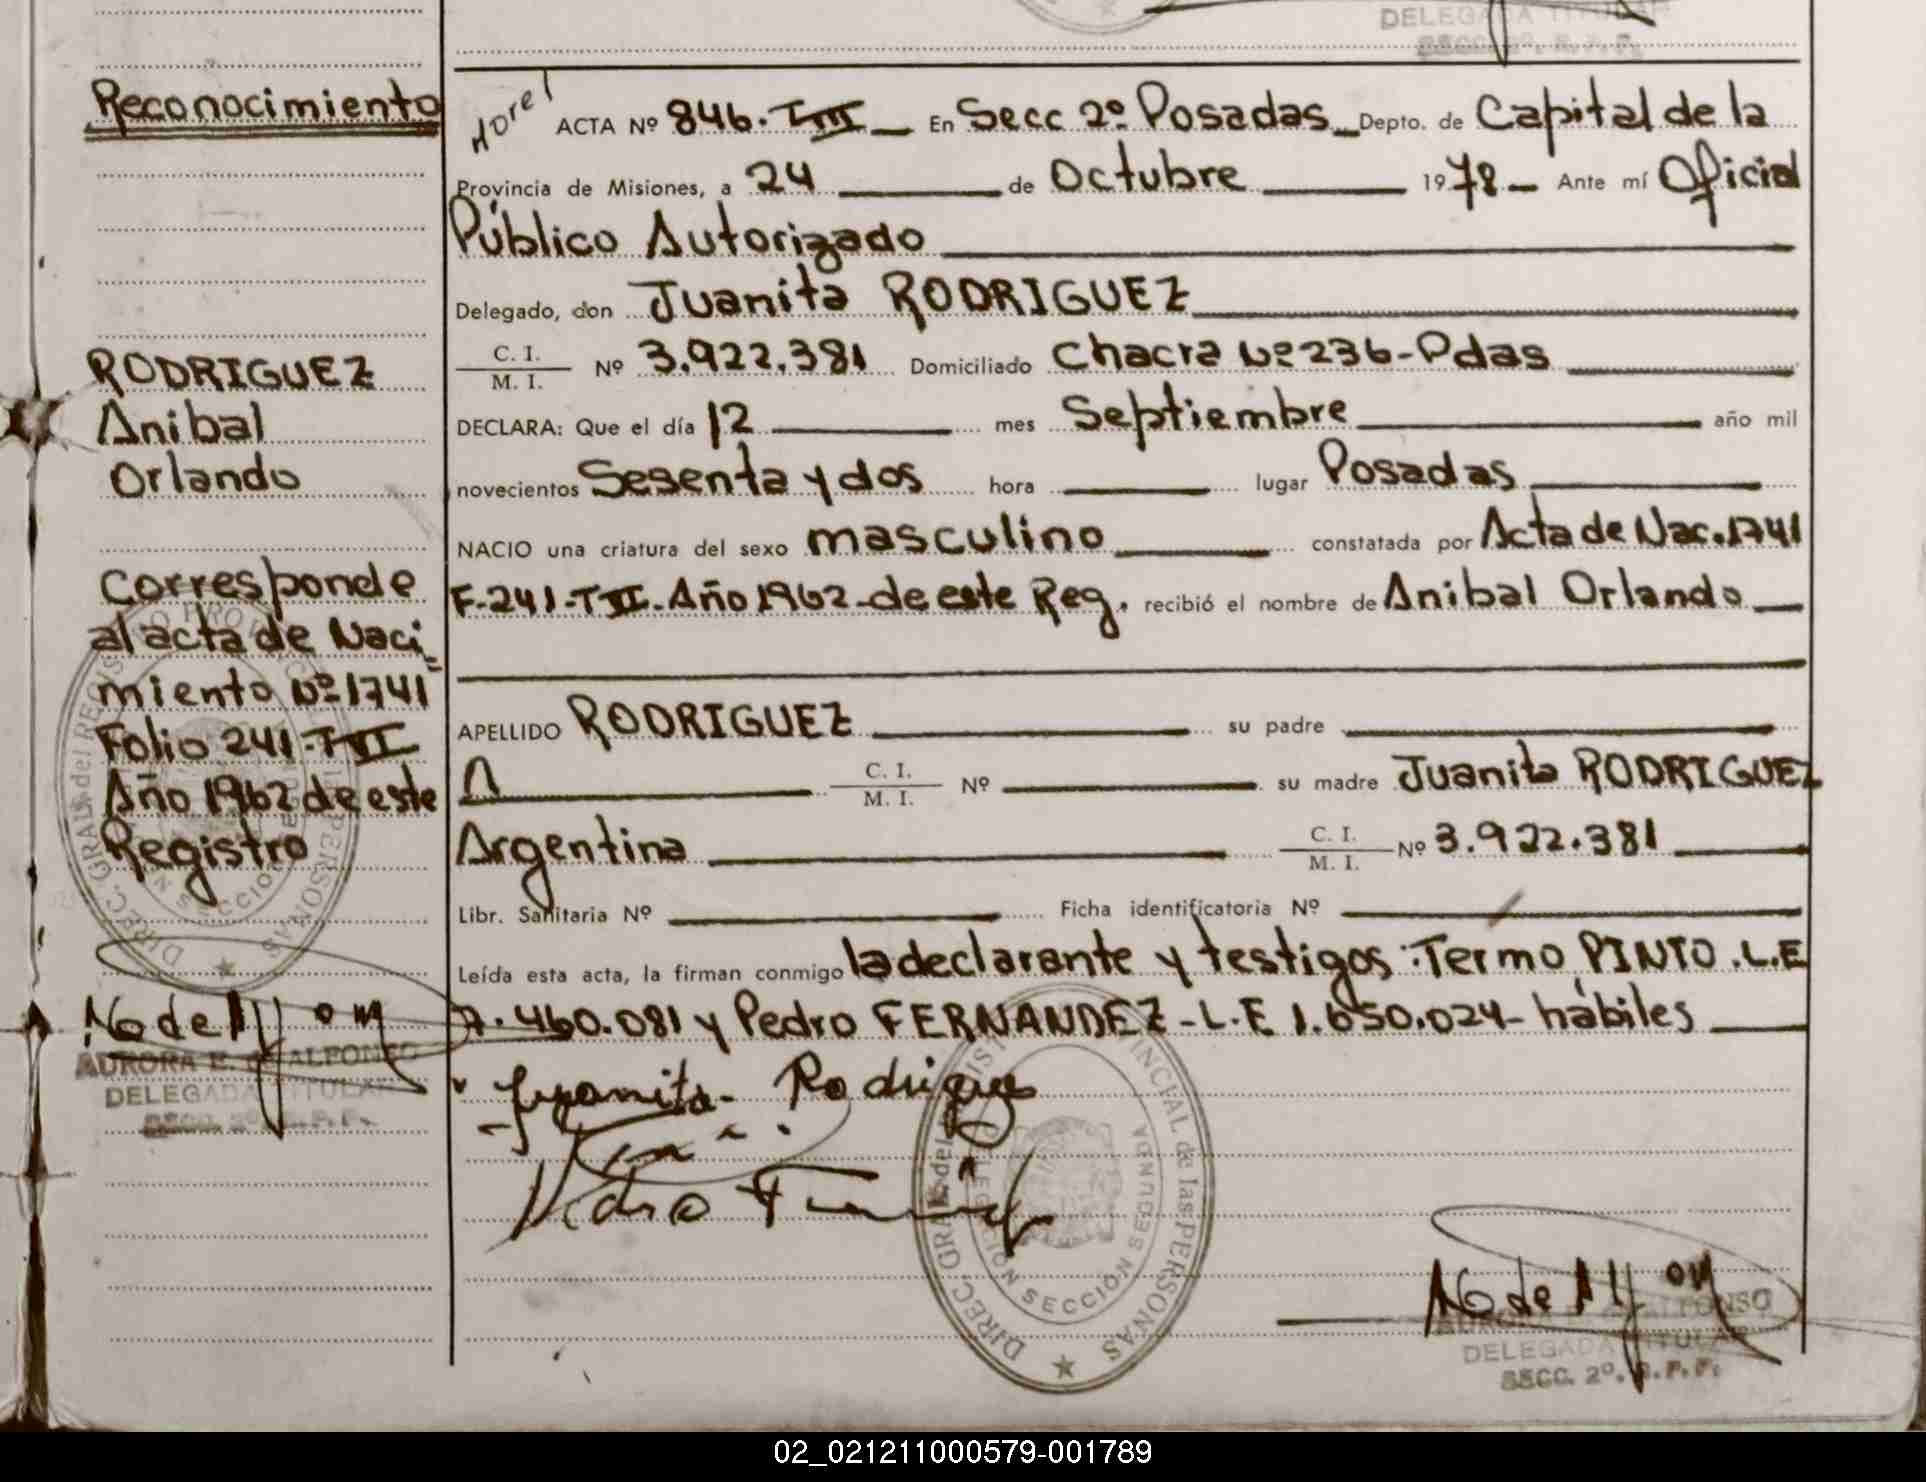 DELEGADA TITULAR
SECC. 2º. R. P. P.
Reconocimiento
RODRIGUEZ
Anibal
Orlando
Corresponde
al acta de Naci
miento Nº 1741
Folio 241-TVI
Año 1962 de este
Registro
AURORA E. de ALFONSO
DELEGADA TITULAR
SECC. 2º. R. P. P.
ACTA Nº 846. TIII _ En Secc 2º Posadas _ Depto. de Capital de la
Provincia de Misiones, a 24 de Octubre 1978 _ Ante mí Oficial
Público Autorizado
Delegado, don Juanita RODRIGUEZ
C. I. / M. I. Nº 3.922.381 Domiciliado Chacra Nº 236-Pdas
DECLARA: Que el día 12 mes Septiembre año mil
novecientos Sesenta y dos hora lugar Posadas
NACIO una criatura del sexo masculino constatada por Acta de Nac. 1741
F-241-TVI-Año 1962-de este Reg. recibió el nombre de Anibal Orlando
APELLIDO RODRIGUEZ su padre
C. I. / M. I. Nº su madre Juanita RODRIGUEZ
Argentina C. I. / M. I. Nº 3.922.381
Libr. Sanitaria Nº Ficha identificatoria Nº
Leída esta acta, la firman conmigo la declarante y testigos: Termo PINTO. L.E
7.460.081 y Pedro FERNANDEZ-L.E 1.650.024-hábiles
Juanita Rodrigues
DIREC. GRAL. del REGISTRO PROVINCIAL de las PERSONAS
DELEGACION SECCION SEGUNDA
AURORA E. de ALFONSO
DELEGADA TITULAR
SECC. 2º. R. P. P.
02_021211000579-001789